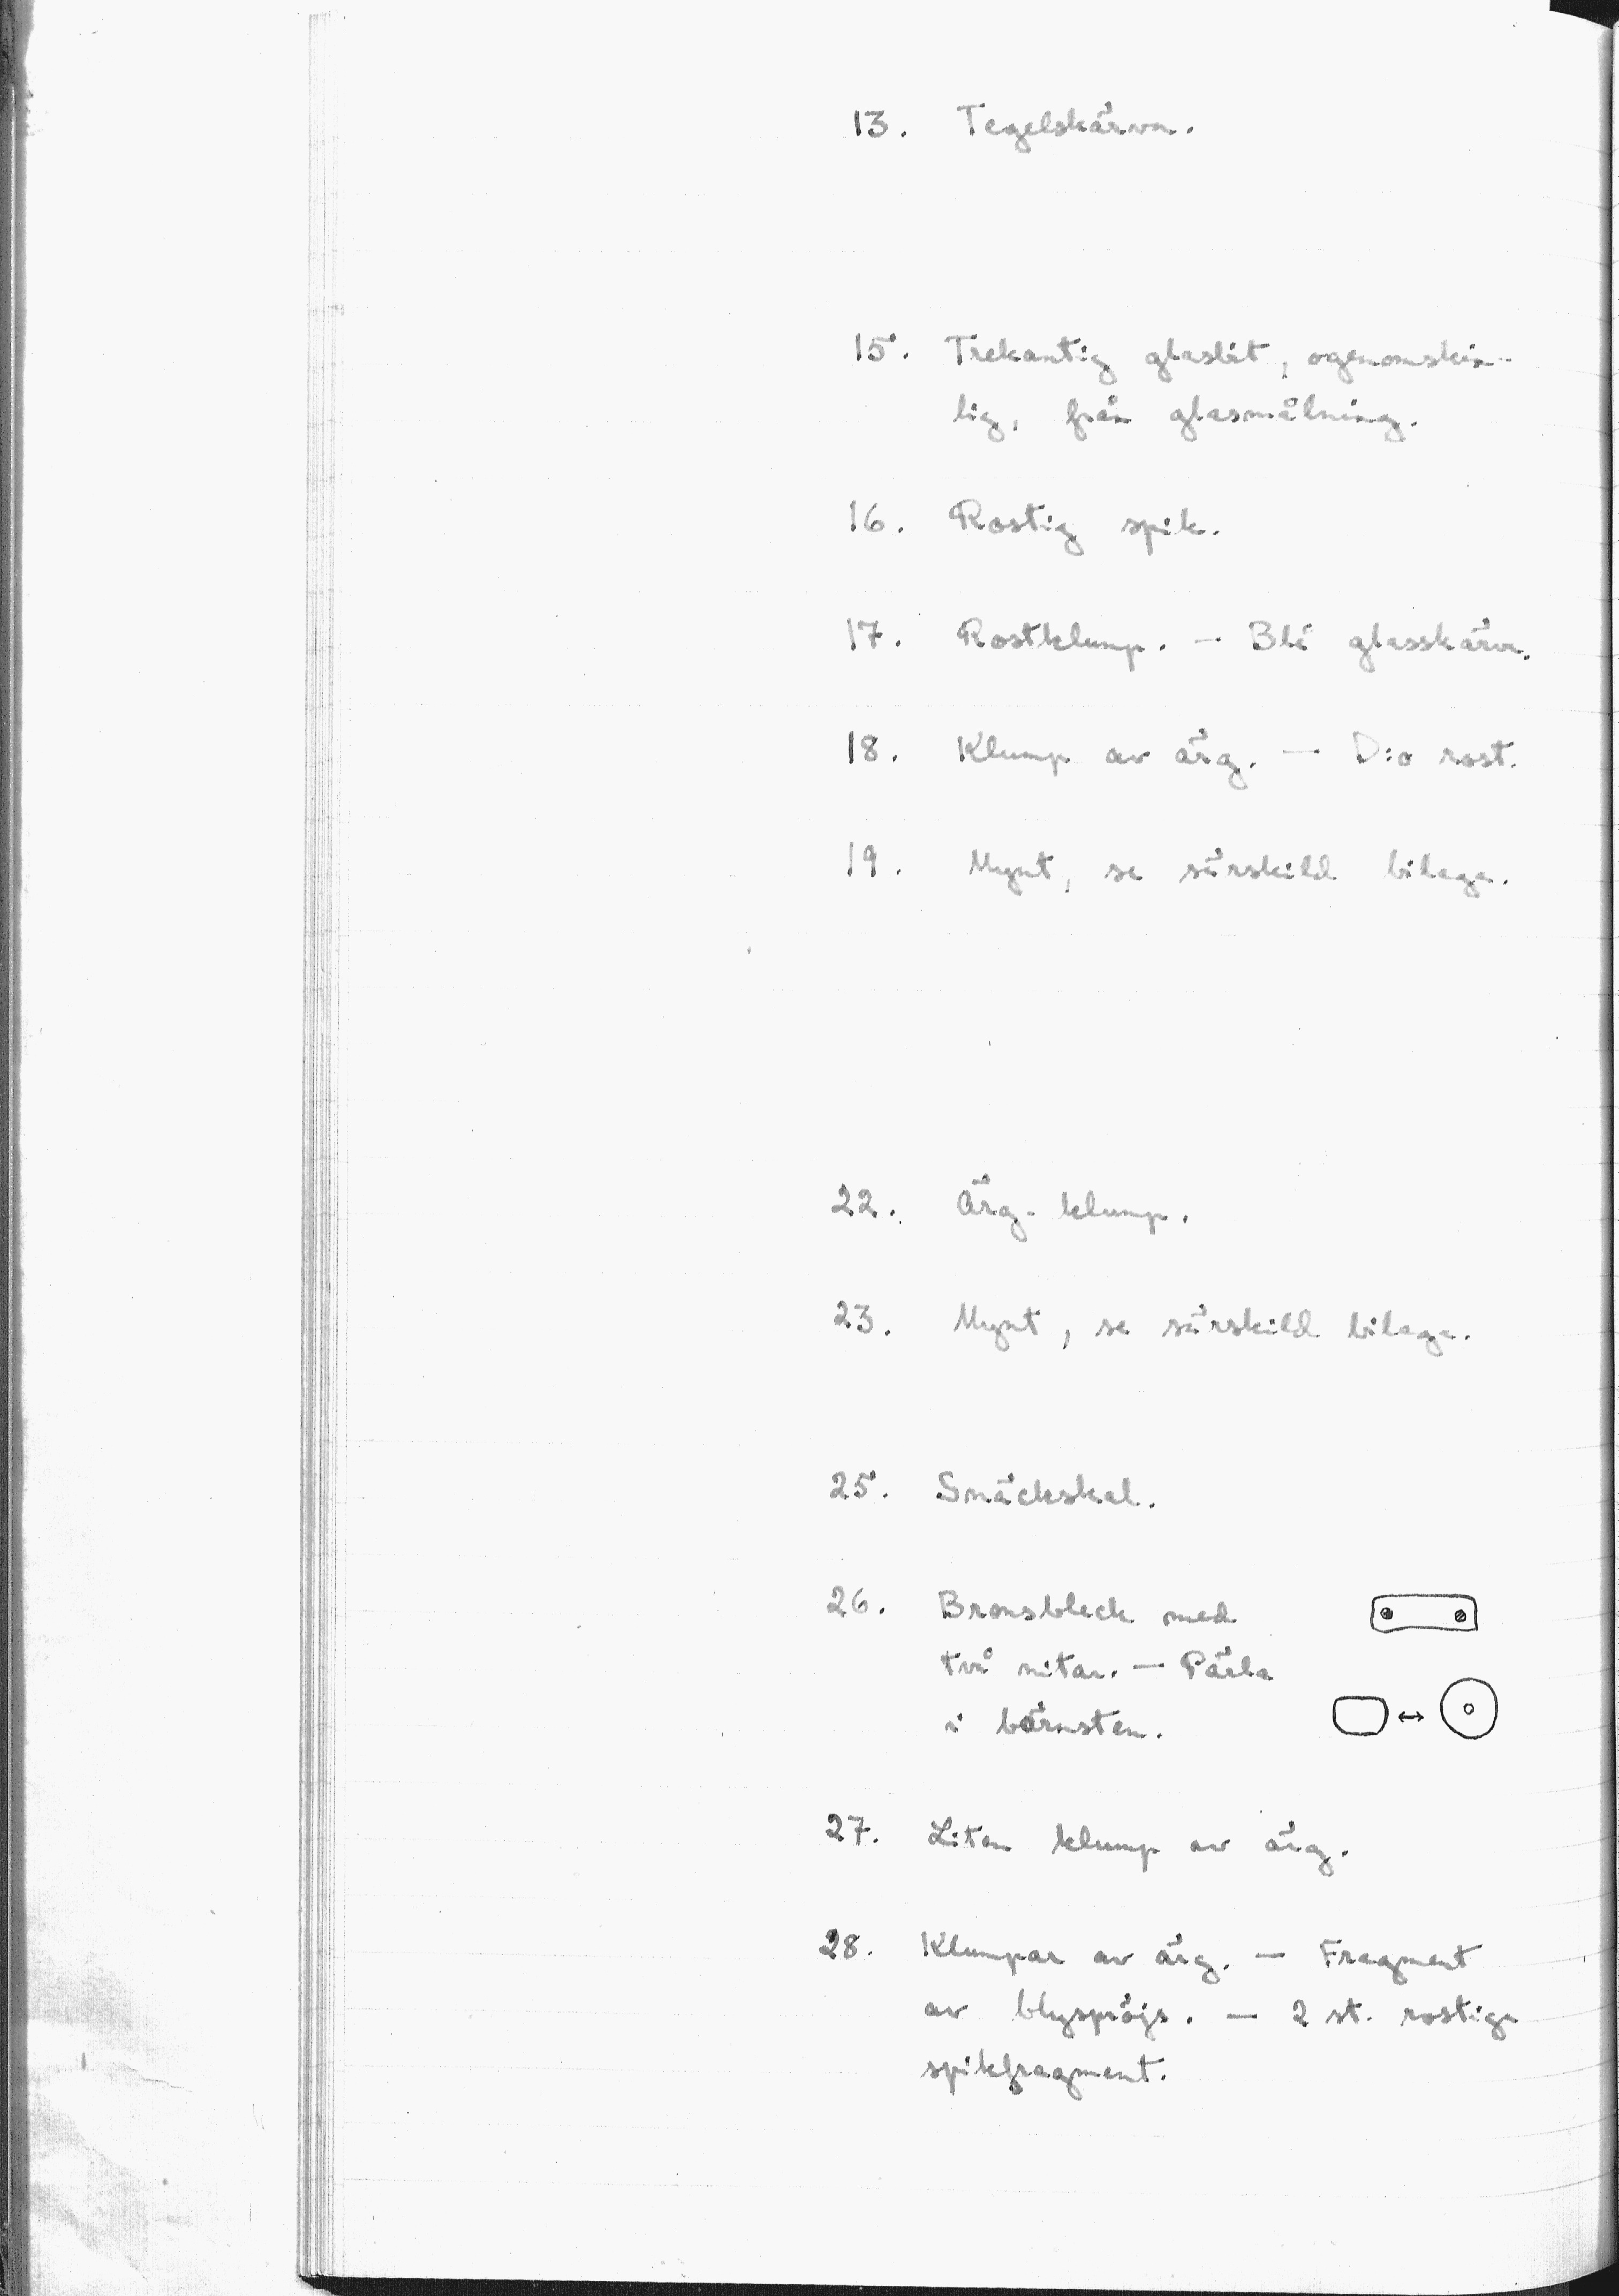 13. Tegelskärva.
15. Trekantig glasbit, ogenomskin-
lig, från glasmålning.
16. Rostig spik.
17. Rostklump. — Blå glasskärva.
18. Klump av ärg. — D:o rost.
19. Mynt, se särskild bilaga.
22. Ärg-klump.
23. Mynt, se särskild bilaga.
25. Snäckskal.
26. Bronsbleck med
två nitar. — Pärla
i bärnsten.
27. Liten klump av ärg.
28. Klumpar av ärg. — Fragment
av blyspröjs. — 2 st. rostiga
spikfragment.